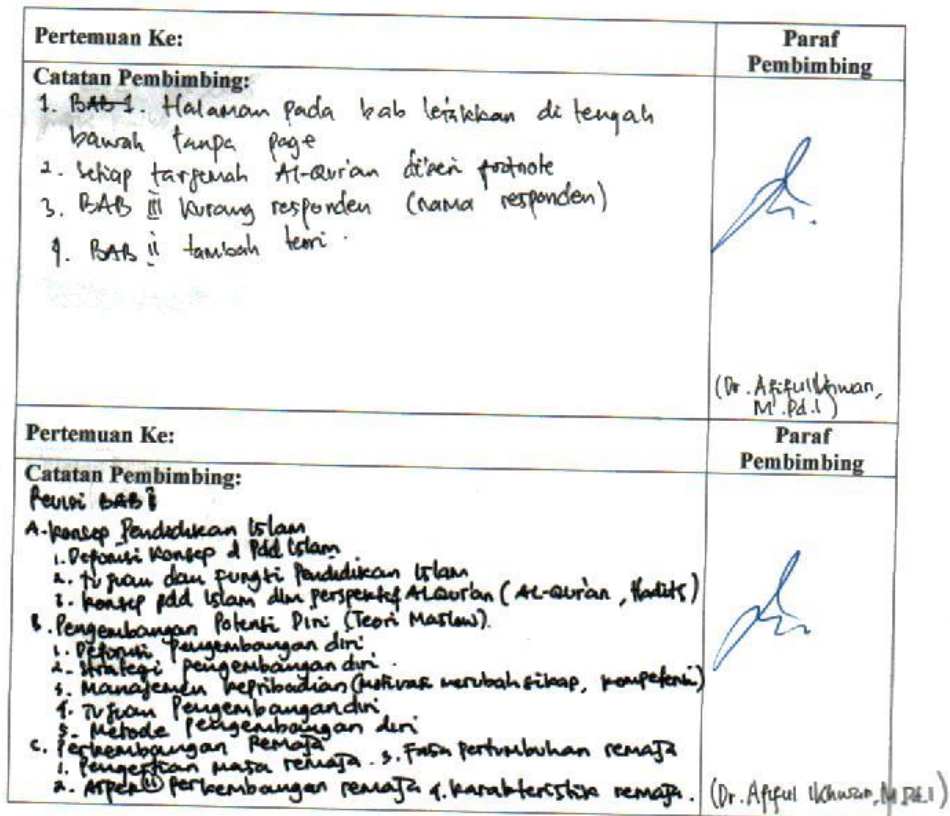 Pertemuan Ke:
Paraf
Pembimbing
Catatan Pembimbing:
1. BAB 1. Halaman pada bab letakkan di tengah
bawah tanpa page
2. Setiap tarjemah Al-Qur'an diberi footnote
3. BAB III kurang responden (nama responden)
4. BAB ii tambah teori.
(Dr. Afiful Ikhwan,
M.Pd.I)
Pertemuan Ke:
Paraf
Pembimbing
Catatan Pembimbing:
Revisi BAB
A. Konsep Pendidikan Islam
1. Definisi Konsep Pdd Islam
2. Tujuan dan fungsi Pendidikan Islam
3. Konsep pdd Islam dlm perspektif ALQur'an (AL-Qur'an, Hadits)
B. Pengembangan Potensi Diri (Teori Maslow).
1. Definisi Pengembangan diri
2. Strategi pengembangan diri.
3. Manajemen kepribadian (motivasi merubah sikap, kompetensi)
4. Tujuan Pengembangan diri
5. Metode Pengembangan diri
C. Perkembangan Remaja
1. Pengertian masa remaja. 3. Fasa pertumbuhan remaja
2. Aspek Perkembangan remaja 4. Karakteristik remaja.
(Dr. Afiful Ikhwan, M.Pd.I)